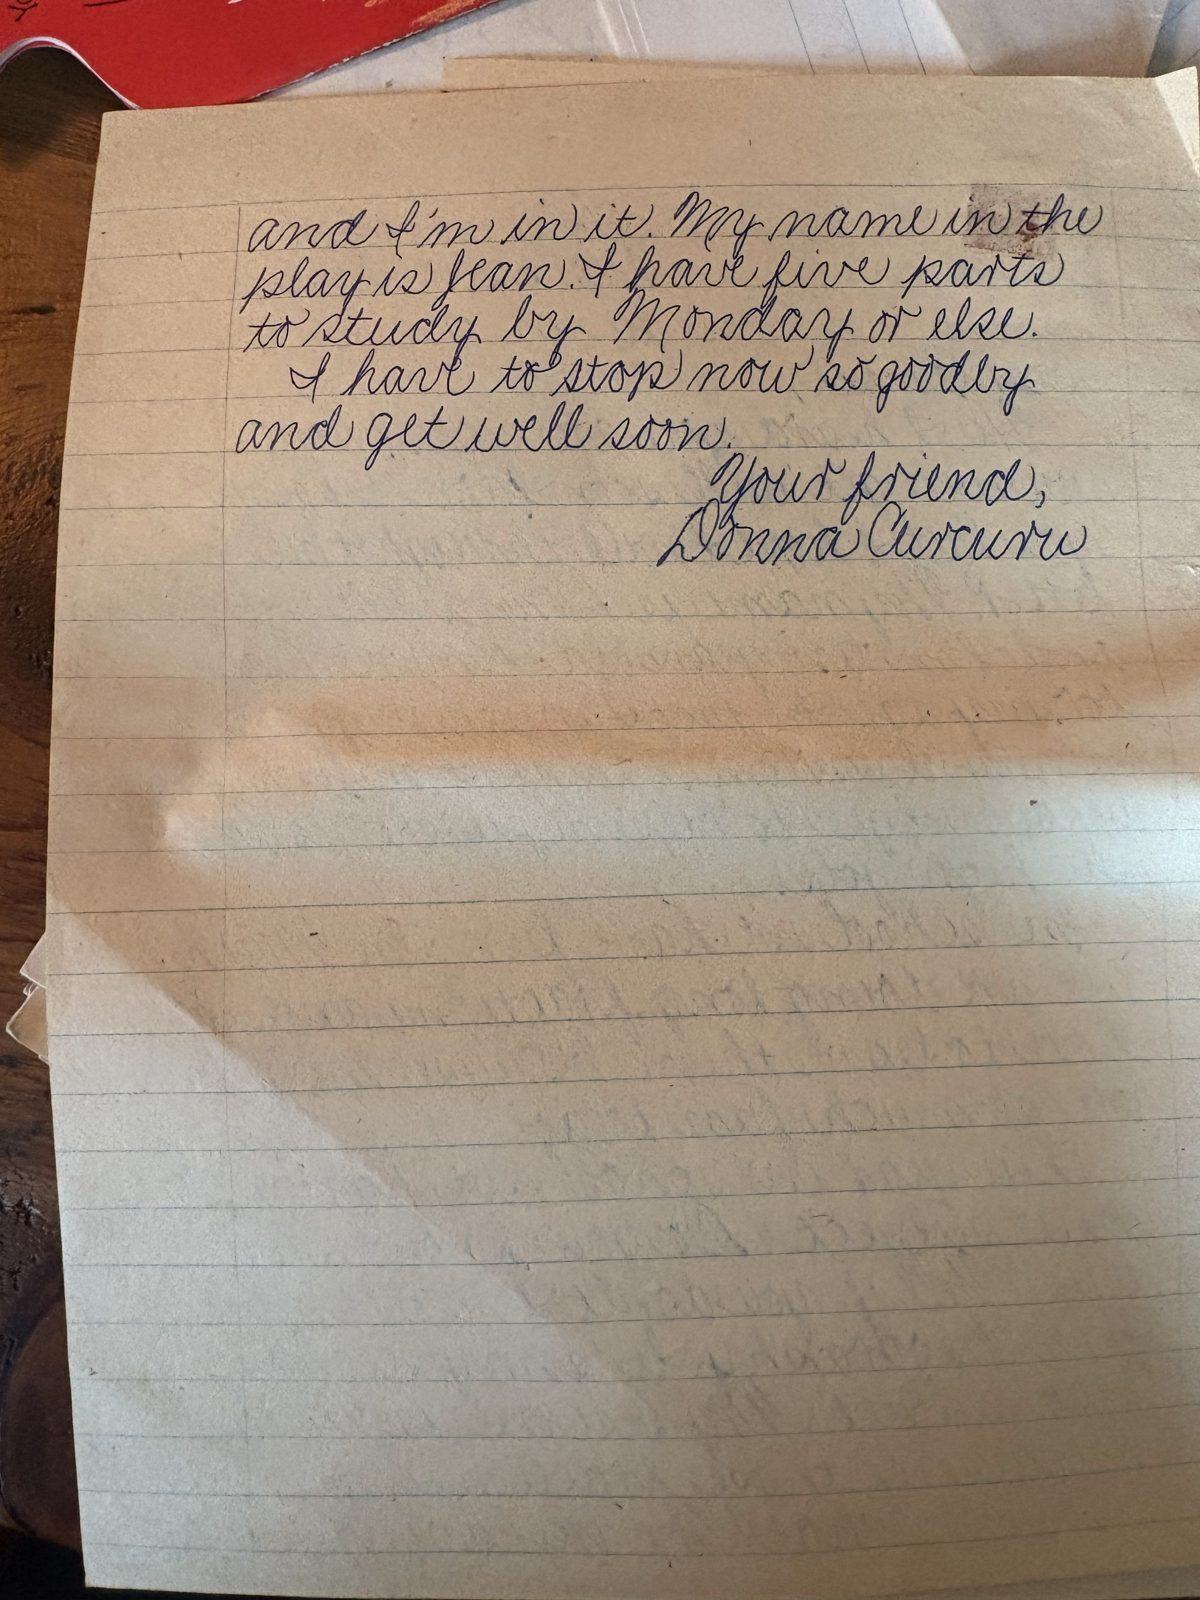 and I'm in it. My name in the
play is Jean. I have five parts
to study by Monday or else.
I have to stop now so goodby
and get well soon.
Your friend,
Donna Curcuru